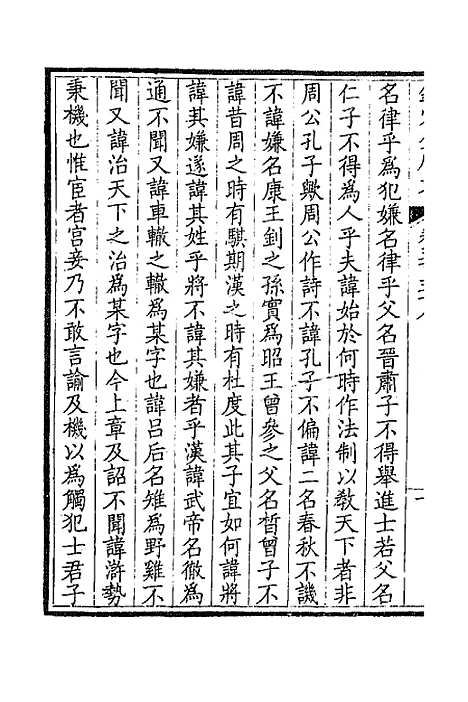 名律乎爲犯嫌名律乎父名晉肅子不得舉進士若父名
仁子不得爲人乎夫諱始於何時作法制以敎天下者非
周公孔子歟周公作詩不諱孔子不偏諱二名春秋不譏
不諱嫌名康王釗之孫實爲昭王曾參之父名晳曾子不
諱昔周之時有騏期漢之時有杜度此其子宜如何諱將
諱其嫌遂諱其姓乎將不諱其嫌者乎漢諱武帝名徹爲
通不聞又諱車轍之轍爲某字也諱呂后名雉爲野雞不
聞又諱治天下之治爲某字也今上章及詔不聞諱滸勢
秉機也惟宦者宮妾乃不敢言諭及機以爲觸犯士君子